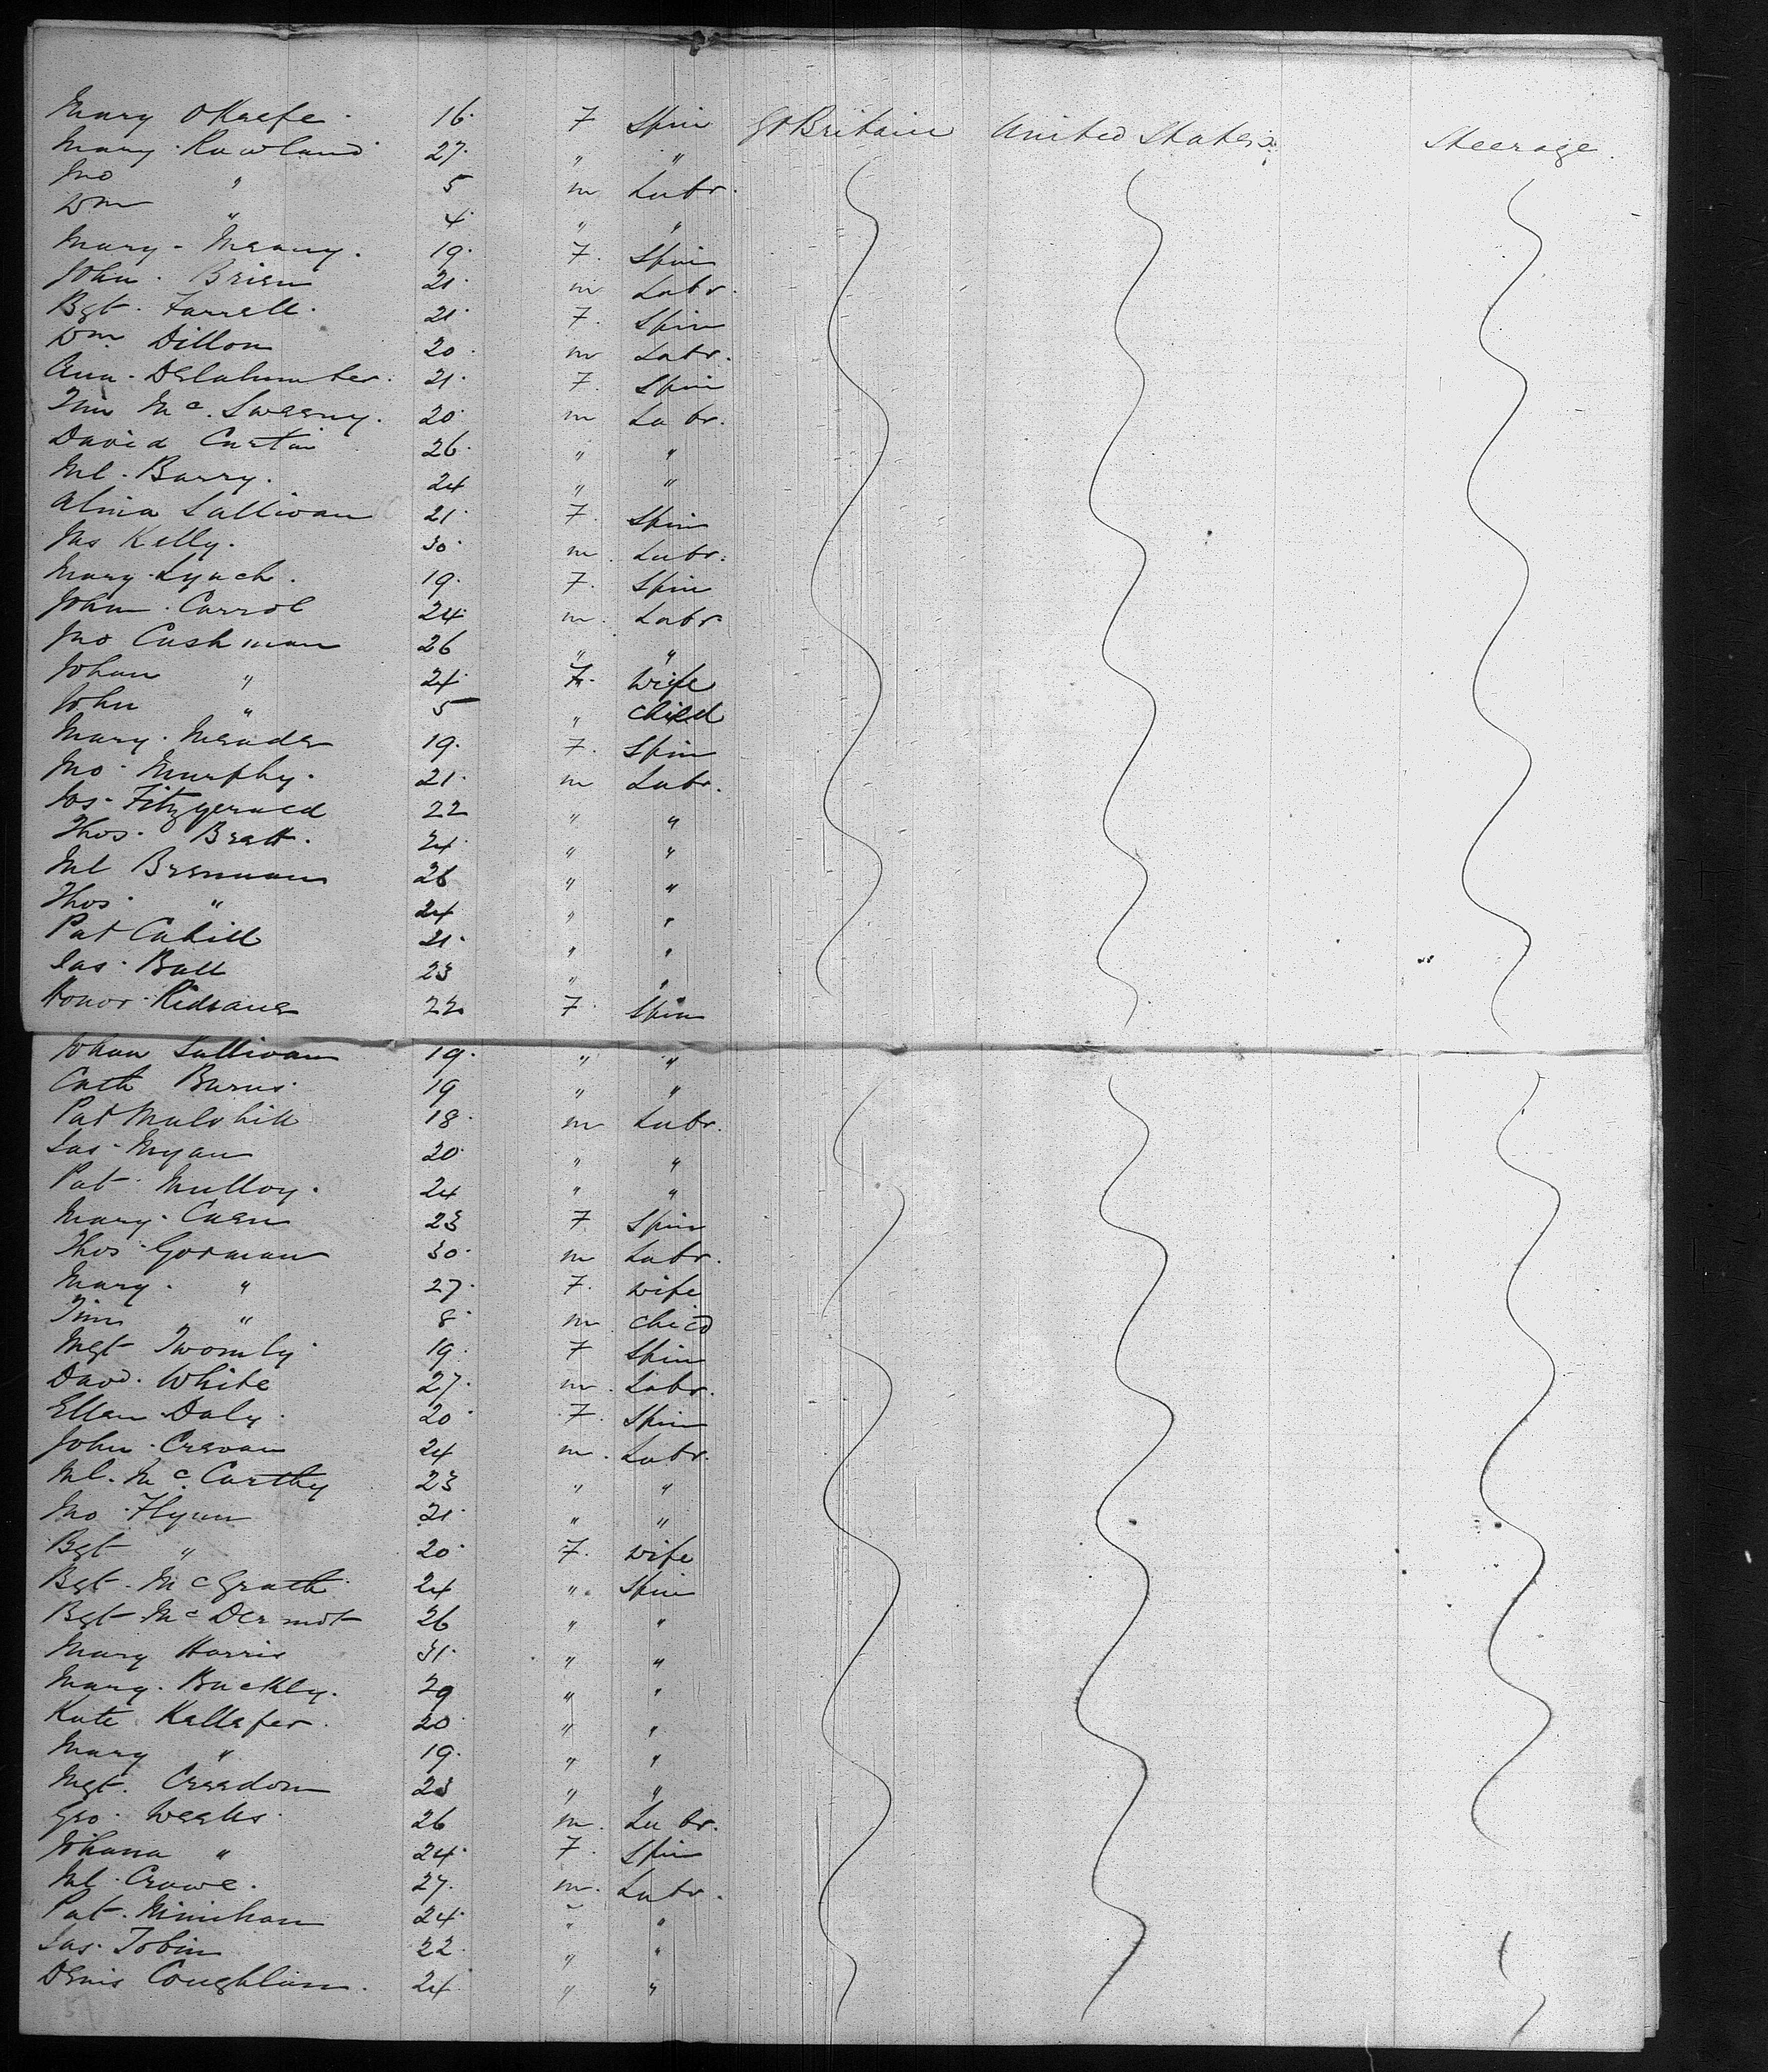 Mary OKeefe. 16. F Spin Gt Britain United States Steerage.
Mary Rowland 27. " "
Jno " 5 m Labr.
Wm " 4. " "
Mary Meany. 19. F. Spin
John Brien 21. m Labr.
Bgt. Farrell. 21. F. Spin
Wm Dillon 20. m Labr.
Ann 21. F. Spin
Tim Mc. Sweeny. 20. m Labr.
David Curtin 26. " "
Ml. Barry. 24 " "
Sullivan 21. F. Spin
Jas Kelly. 30. m. Labr.
Mary Lynch. 19. F. Spin
John Carrol 24. m. Labr
Jno Cushman 26 " "
Johan " 24. F. Wife
John " 5 " Child
Mary Meade 19. F. Spin
Jno Murphy. 21. m Labr.
Jos. Fitzgerald 22 " "
Thos. Brett. 24. " "
Ml Brennan 26 " "
Thos. " 24 " "
Pat Cahill 21. " "
Jas. Ball 23 " "
Honor 22 F. Spin
Johan Sullivan 19. " "
Cath Burns. 19 " "
Pat Mulvhill 18. m Labr.
Jas. 20. " "
Pat Mulloy. 24 " "
Mary 23 F. Spin
Thos Gorman 30. m Labr.
Mary. " 27. F. Wife
Tim " 8. m. Child
Mgt Twomly 19. F Spin
Davd. White 27. m. Labr.
Ellen Daly. 20. F. Spin
John Creevan 24 m. Labr.
Ml. Mc Carthy 23 " "
Jno Flynn 21. " "
Bgt " 20. F. Wife
Bgt. McGrath 24 " Spin
Bgt McDermot 26 " "
Mary Harris 31. " "
Mary. Buckly. 29 " "
Kate 20. " "
Mary " 19. " "
Mgt. Creedon 23 " "
Geo. Weeks. 26 m. Labr.
Johana " 24. F. Spin
Ml. Crowe. 27. m. Labr.
Pat. Minihan 24. " "
Jas. Tobin 22. " "
Denis Coughlan. 24 " "